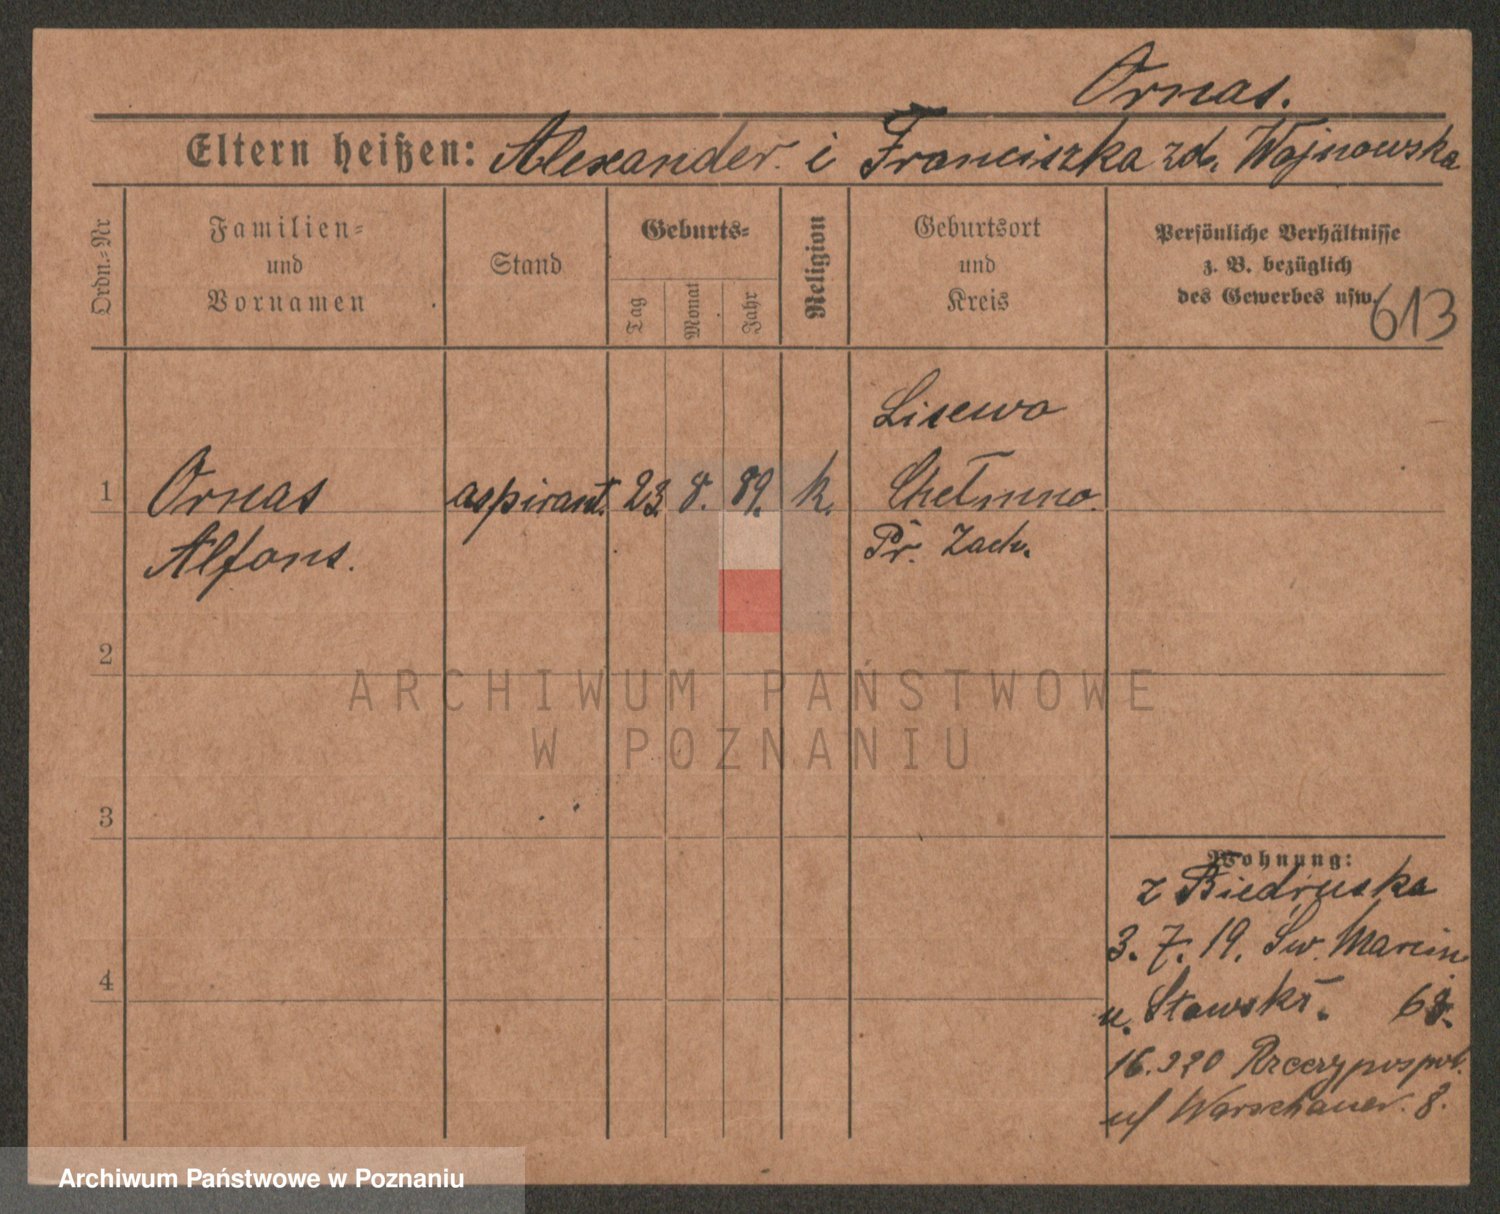 Ornas.
Eltern heißen: Alexander i Franciszka zd. Wojnowska
Ordn.-Nr
Familien-
und
Vornamen
Stand
Geburts-
Tag
Monat
Jahr
Religion
Geburtsort
und
Kreis
Persönliche Verhältnisse
z. B. bezüglich
des Gewerbes usw.
613
1
Ornas
Alfons.
aspirant.
23.
8.
89.
k.
Lisewo
Chełmno.
Pr. Zach.
2
3
4
ARCHIWUM PAŃSTWOWE
W POZNANIU
Wohnung:
z Biedruska
3. 7. 19. Św. Marcin
u. 68.
Rzeczypospol.
Warschauer. 8.
Archiwum Państwowe w Poznaniu